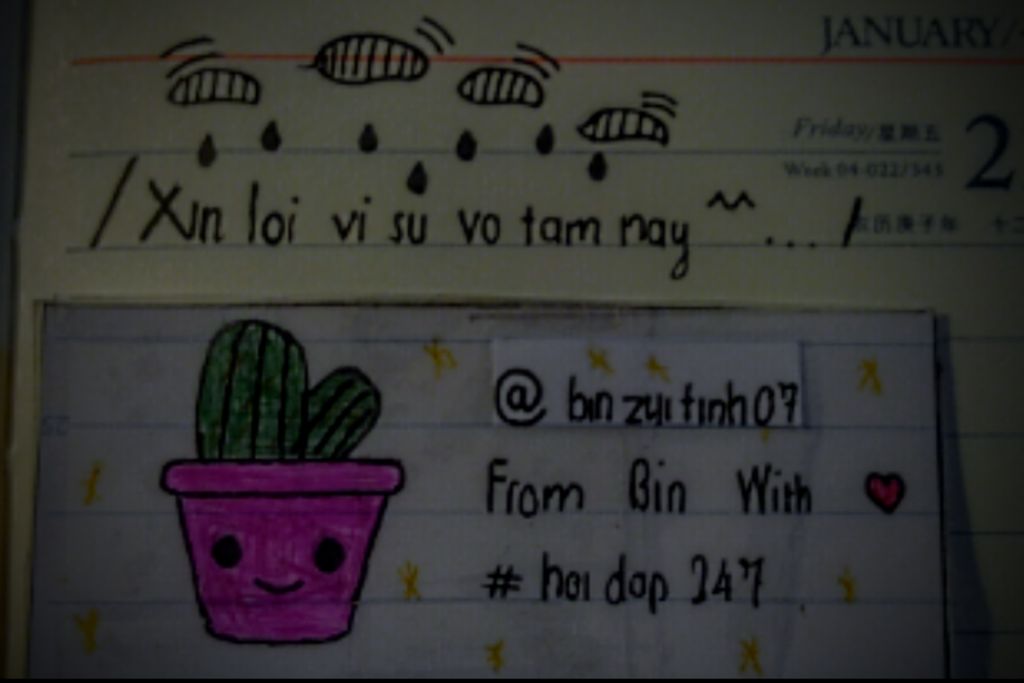 JANUARY/
Friday/星期五
2
Week 04-022/343
/Xin loi vi su vo tam nay ^^ ... /
农历庚子年 十二
@ binzuitinh07
From Bin With ❤
# hoi dap 247